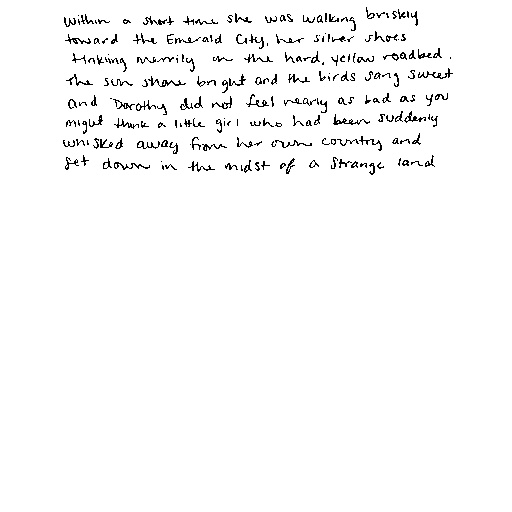 Within a short time she was walking briskly
toward the Emerald City, her silver shoes
tinkling merrily on the hard, yellow roadbed.
The sun shone bright and the birds sang sweet
and Dorothy did not feel nearly as bad as you
might think a little girl who had been suddenly
whisked away from her own country and
set down in the midst of a strange land